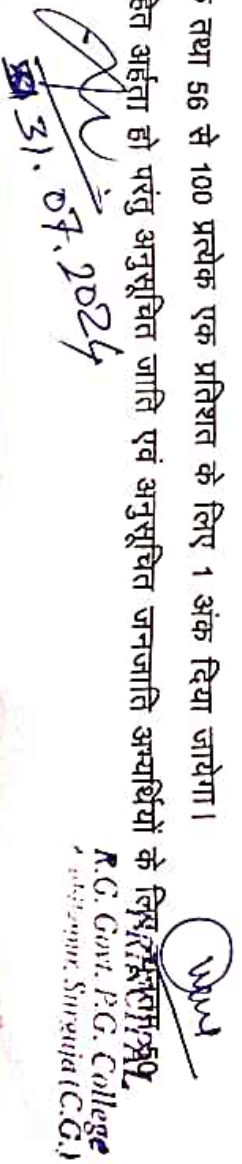 तथा 56 से 100 प्रत्येक एक प्रतिशत के लिए 1 अंक दिया जायेगा।
अर्हता हो परंतु अनुसूचित जाति एवं अनुसूचित जनजाति अभ्यर्थियों के
31.07.2024
R.G. Govt. P.G. College
Surguja (C.G.)